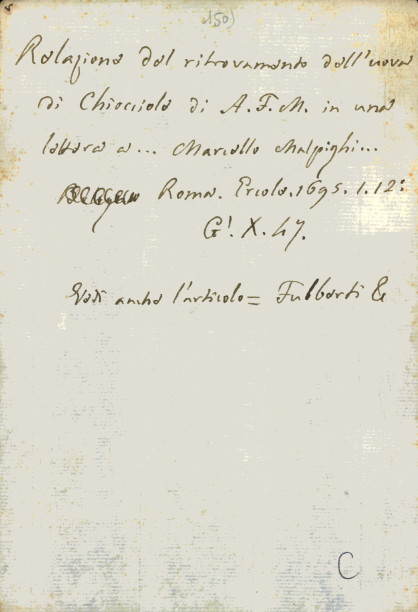 150)
Relazione del ritrovamento dell'uova
di Chiocciole di A. F. M. in una
lettera a ... Marcello Malpighi ...
Roma. Ercole. 1695. 1. 12:
G!. X. 47.
Vedi anche l'articolo = Fulberti &
C